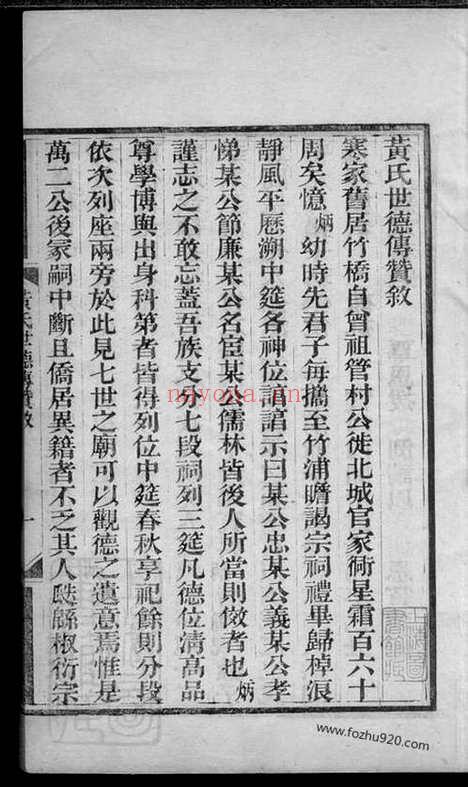 黃氏世德傳贊敘
寒家舊居竹橋自曾祖管村公徙北城官家衖星霜百六十
周矣憶炳幼時先君子每攜至竹浦瞻謁宗祠禮畢歸棹浪
靜風平歷溯中筵各神位諳諳示曰某公忠某公義某公孝
悌某公節廉某公名宦某公儒林皆後人所當則傚者也炳
謹志之不敢忘蓋吾族支分七段祠列三筵凡德位清高品
尊學博與出身科第者皆得列位中筵春秋享祀餘則分段
依次列座兩旁於此見七世之廟可以觀德之遺意焉惟是
萬二公後冢嗣中斷且僑居異籍者不乏其人瓞緜椒衍宗
黃氏世德傳贊敘
一
nayona.cn
www.fozhu920.com